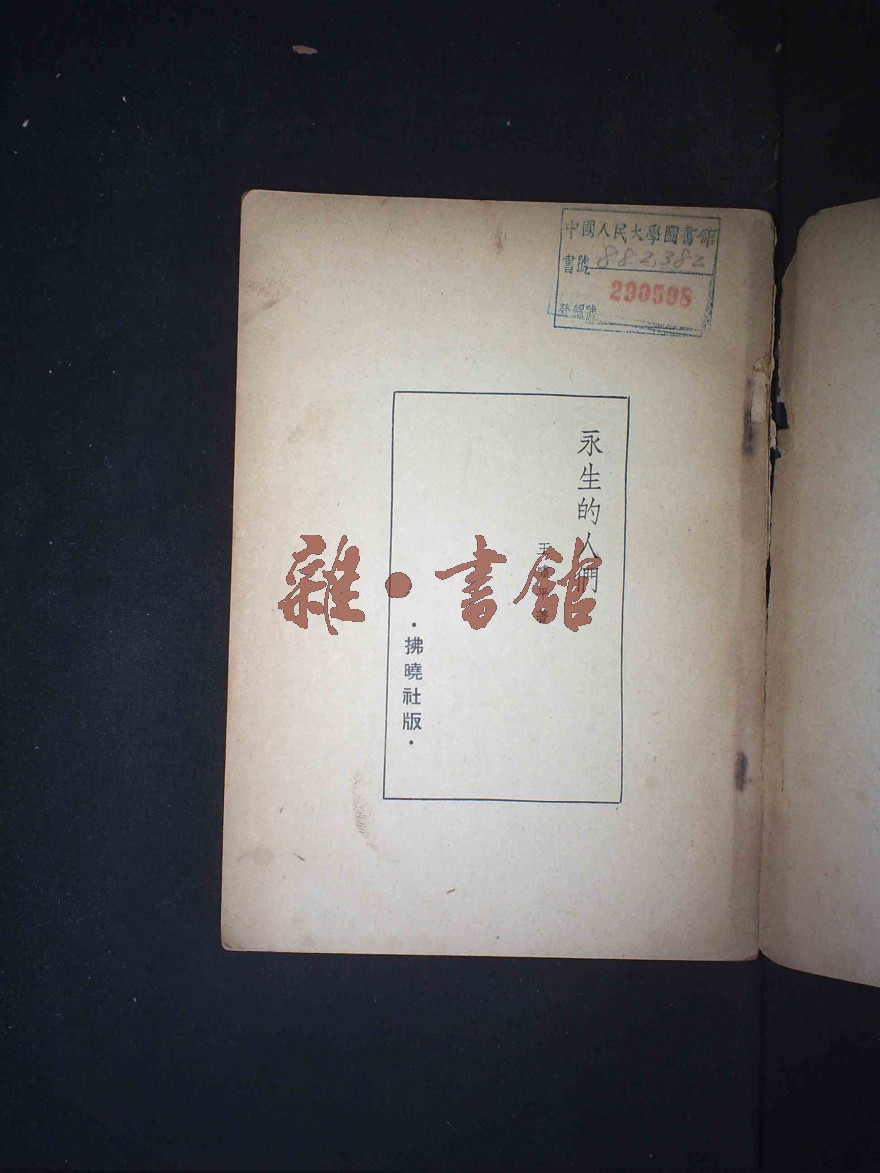 中國人民大學圖書館
書號 882.382
登錄號 290598
永生的人們
王
著
·拂曉社版·
雜·書館